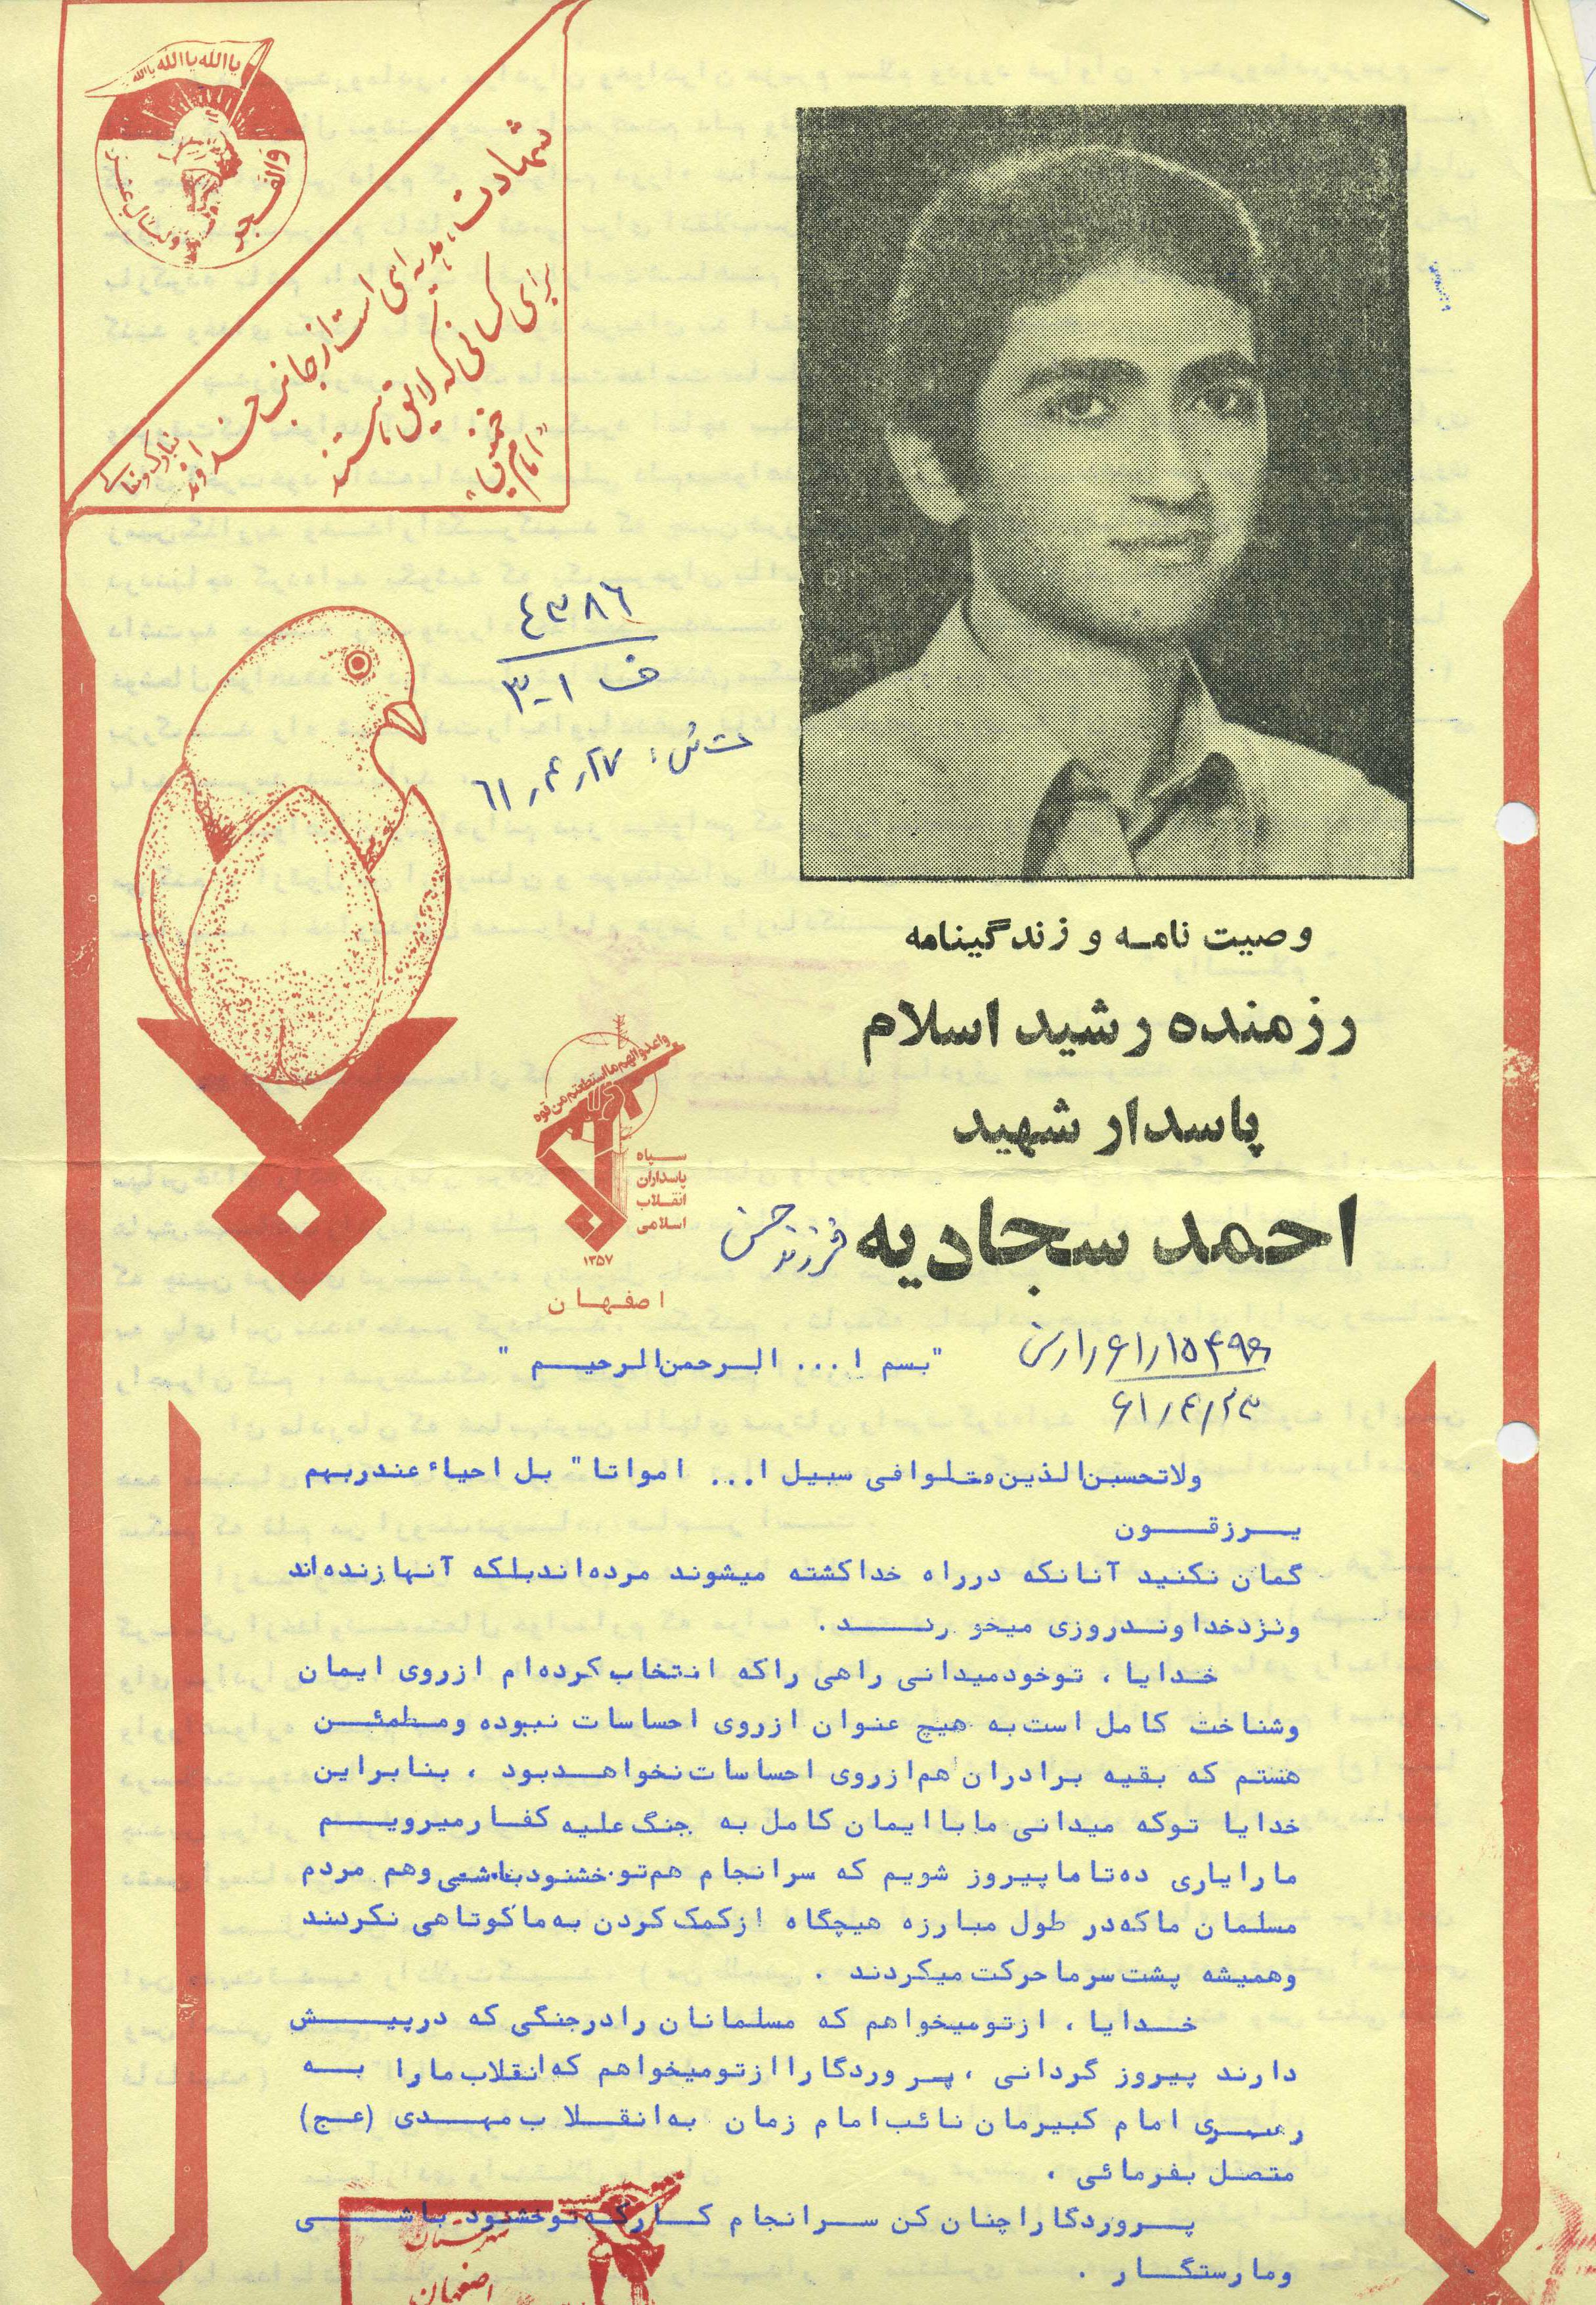 یاالله یاالله یاالله
والفجر
ولیال عشر
شهادت، هدیه ای است از جانب خداوند تبارک و تعالی
برای کسانی که لایق هستند
"امام خمینی"
۴۳۸۶
ف ۱-۳
ت ش: ۶۱٫۴٫۲۷
وصیت نامه و زندگینامه
رزمنده رشید اسلام
پاسدار شهید
احمد سجادیه فرزند حسن
واعدوا لهم ما استطعتم من قوه
سپاه
پاسداران
انقلاب
اسلامی
۱۳۵۷
اصفهان
۶۱٫۴٫۲۳
"بسم ا... الرحمن الرحیم"
ولاتحسبن الذین قتلوا فی سبیل ا... امواتا" بل احیاء عند ربهم
یرزقون
گمان نکنید آنانکه در راه خدا کشته میشوند مرده اند بلکه آنها زنده اند
ونزد خداوند روزی میخورند.
خدایا، تو خود میدانی راهی را که انتخاب کرده ام از روی ایمان
وشناخت کامل است به هیچ عنوان از روی احساسات نبوده و مطمئن
هستم که بقیه برادران هم از روی احساسات نخواهد بود، بنابراین
خدایا تو که میدانی ما با ایمان کامل به جنگ علیه کفار میرویم
ما را یاری ده تا ما پیروز شویم که سرانجام هم تو خشنود باشی وهم مردم
مسلمان ما که در طول مبارزه هیچگاه از کمک کردن به ما کوتاهی نکردند
وهمیشه پشت سر ما حرکت میکردند.
خدایا، از تو میخواهم که مسلمانان را در جنگی که در پیش
دارند پیروز گردانی، پروردگارا از تو میخواهم که انقلاب ما را به
رهبری امام کبیرمان نائب امام زمان به انقلاب مهدی (عج)
متصل بفرمائی.
پروردگارا چنان کن سرانجام کار که تو خشنود باشی
وما رستگار.
اصفهان